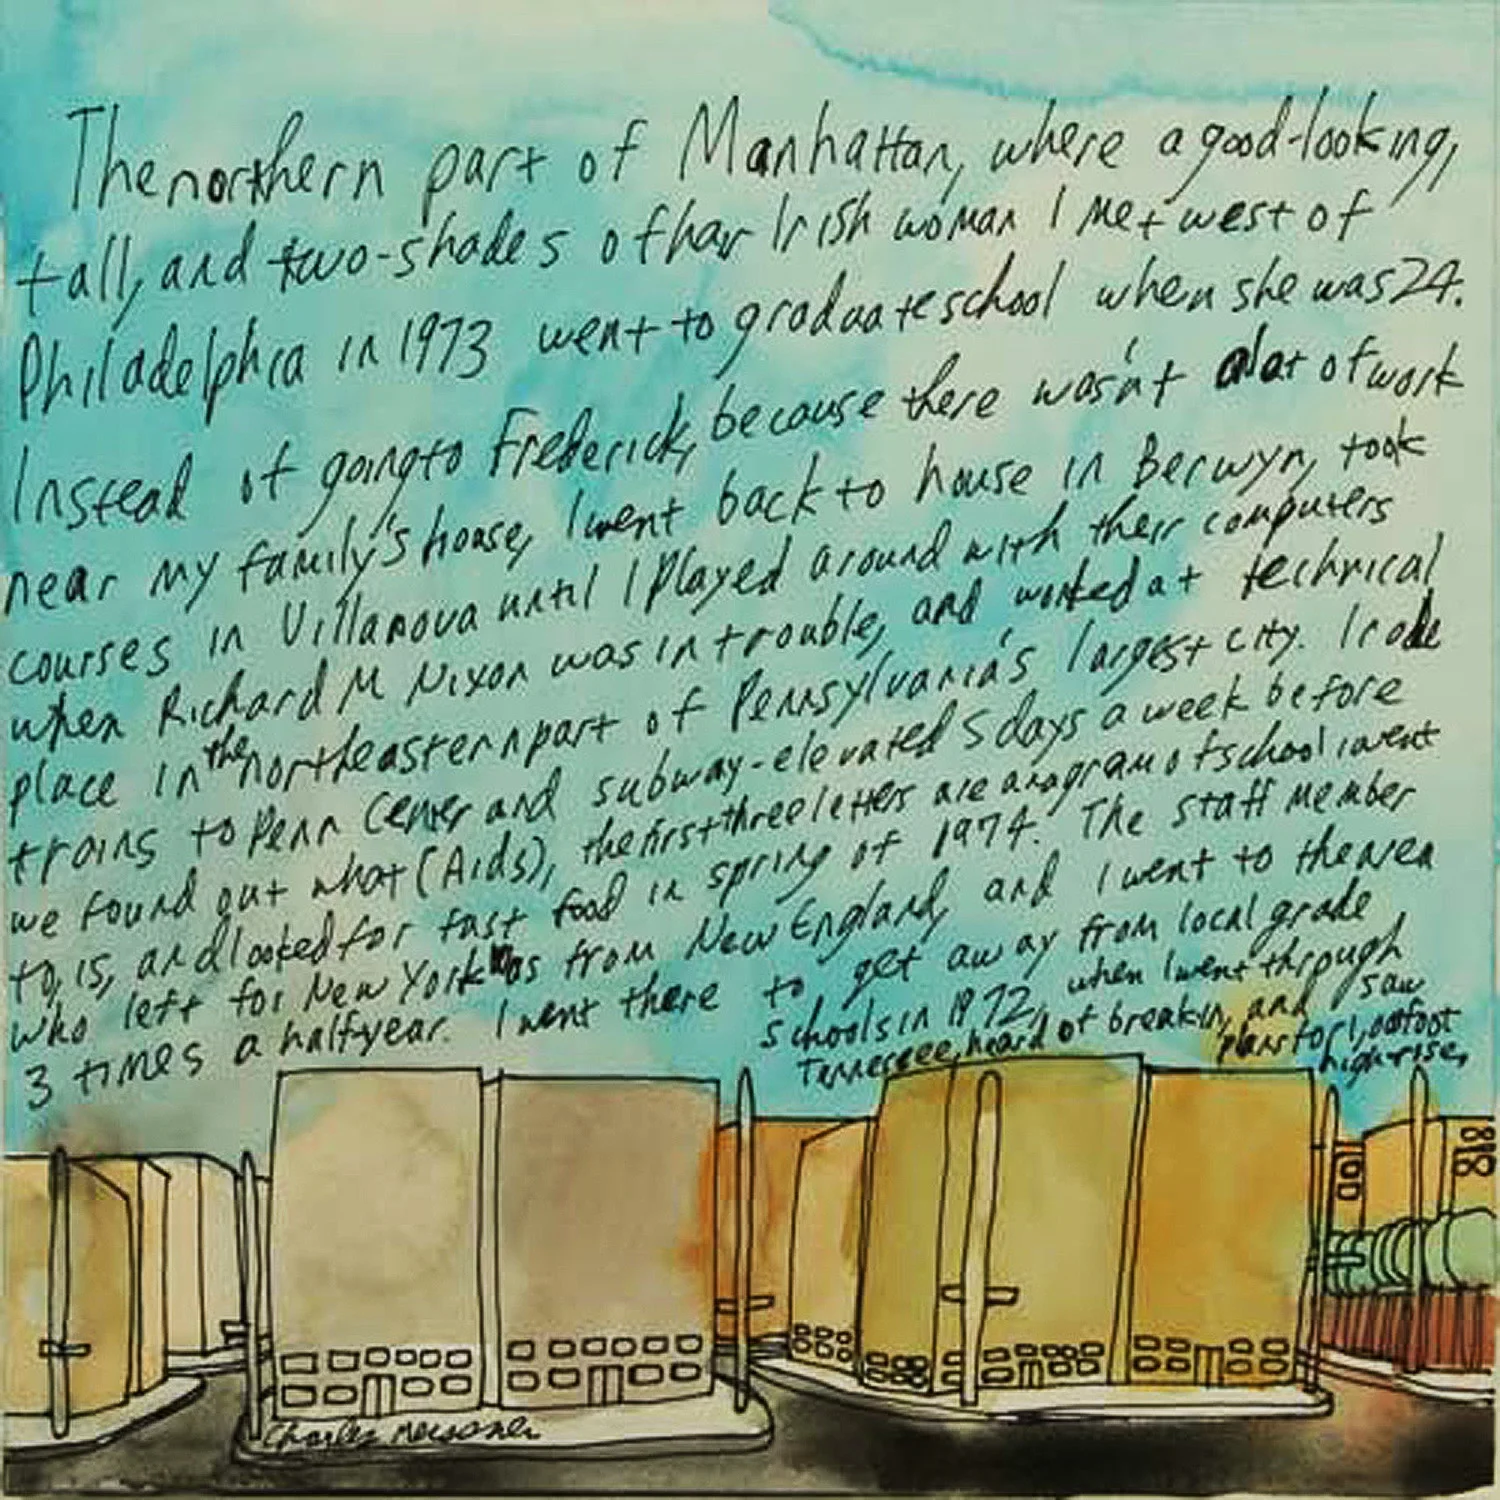 The northern part of Manhattan, where a good-looking,
tall, and two-shades of hair Irish woman I met west of
Philadelphia in 1973 went to graduate school when she was 24.
Instead of going to Frederick, because there wasn't alot of work
near my family's house, I went back to house in Berwyn, took
courses in Villanova until I played around with their computers
when Richard M Nixon was in trouble, and worked at technical
place in the northeastern part of Pennsylvania's largest city. I rode
trains to Penn Center and subway-elevated 5 days a week before
we found out what (Aids), the first three letters are anagram of school I went
to, is, and looked for fast food in spring of 1974. The staff member
who left for New York was from New England, and I went to the area
3 times a half-year. I went there to get away from local grade
schools in 1972, when I went through
Tennessee, heard of breakin, and saw
plans for 1,00foot
highrise,
Charles Meissner